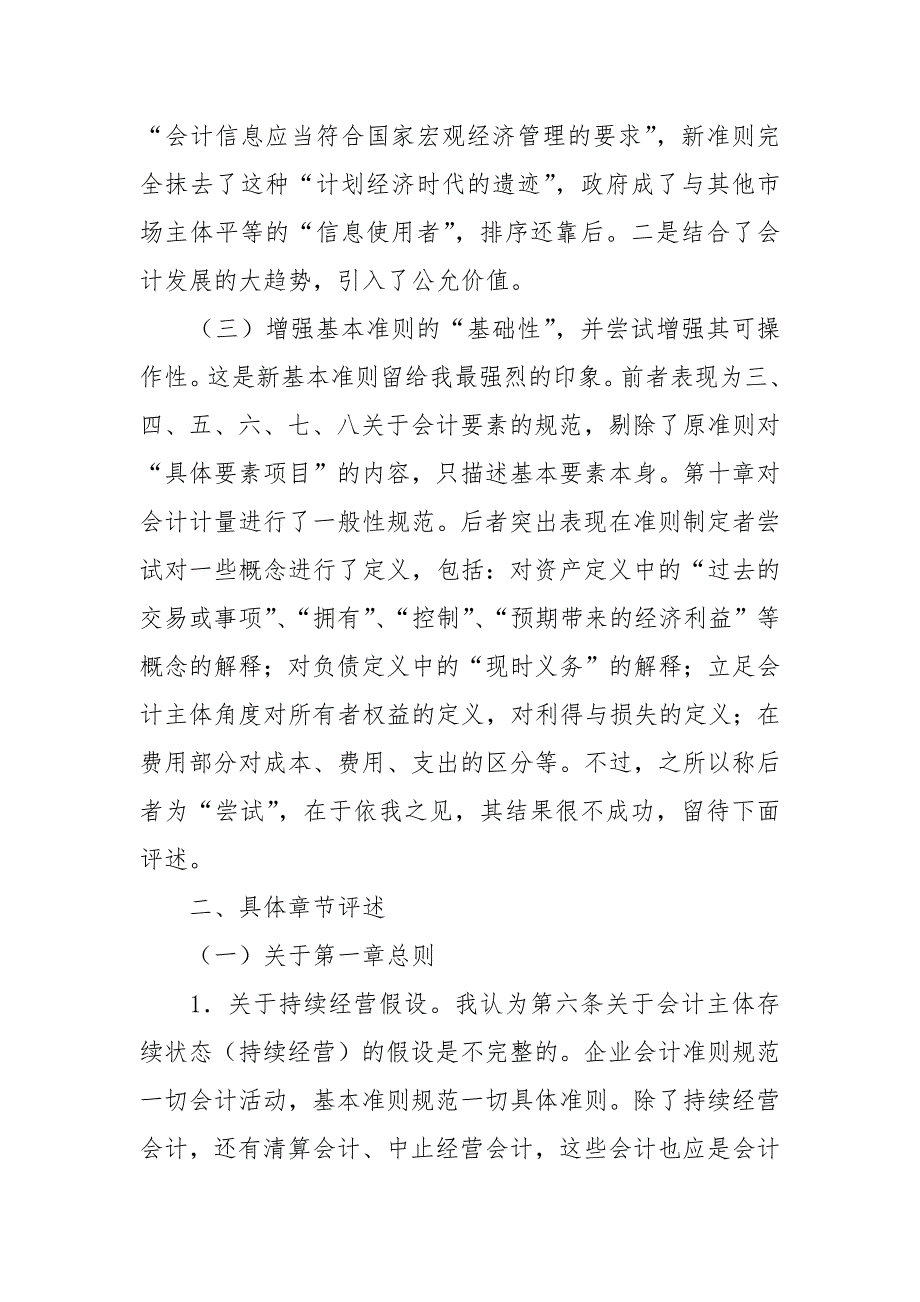 “会计信息应当符合国家宏观经济管理的要求”，新准则完
全抹去了这种“计划经济时代的遗迹”，政府成了与其他市
场主体平等的“信息使用者”，排序还靠后。二是结合了会
计发展的大趋势，引入了公允价值。
（三）增强基本准则的“基础性”，并尝试增强其可操
作性。这是新基本准则留给我最强烈的印象。前者表现为三、
四、五、六、七、八关于会计要素的规范，剔除了原准则对
“具体要素项目”的内容，只描述基本要素本身。第十章对
会计计量进行了一般性规范。后者突出表现在准则制定者尝
试对一些概念进行了定义，包括：对资产定义中的“过去的
交易或事项”、“拥有”、“控制”、“预期带来的经济利益”等
概念的解释；对负债定义中的“现时义务”的解释；立足会
计主体角度对所有者权益的定义，对利得与损失的定义；在
费用部分对成本、费用、支出的区分等。不过，之所以称后
者为“尝试”，在于依我之见，其结果很不成功，留待下面
评述。
二、具体章节评述
（一）关于第一章总则
1．关于持续经营假设。我认为第六条关于会计主体存
续状态（持续经营）的假设是不完整的。企业会计准则规范
一切会计活动，基本准则规范一切具体准则。除了持续经营
会计，还有清算会计、中止经营会计，这些会计也应是会计